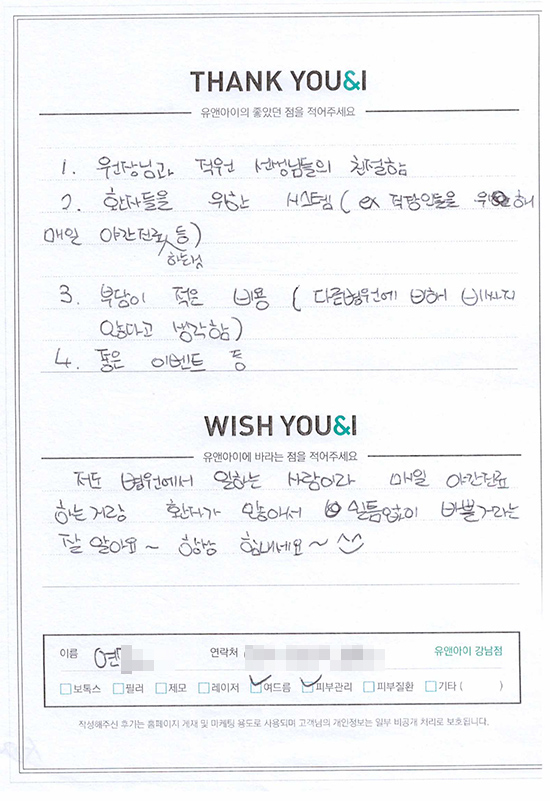 THANK YOU&I
유앤아이의 좋았던 점을 적어주세요
1. 원장님과 직원 선생님들의 친절함
2. 환자들을 위한 시스템 ( ex 직장인들을 위해
매일 야간진료 등)
하는것
3. 부담이 적은 비용 ( 다른병원에 비해 비싸지
않다고 생각함)
4. 좋은 이벤트 등
WISH YOU&I
유앤아이에 바라는 점을 적어주세요
저도 병원에서 일하는 사람이라 매일 야간진료
하는거랑 환자가 많아서 쉴틈없이 바쁠거라는
잘 알아요~ 항상 힘내세요~ ^^
이름 연 연락처 유앤아이 강남점
보톡스 필러 제모 레이저 여드름 피부관리 피부질환 기타 ( )
작성해주신 후기는 홈페이지 게재 및 마케팅 용도로 사용되며 고객님의 개인정보는 일부 비공개 처리로 보호됩니다.